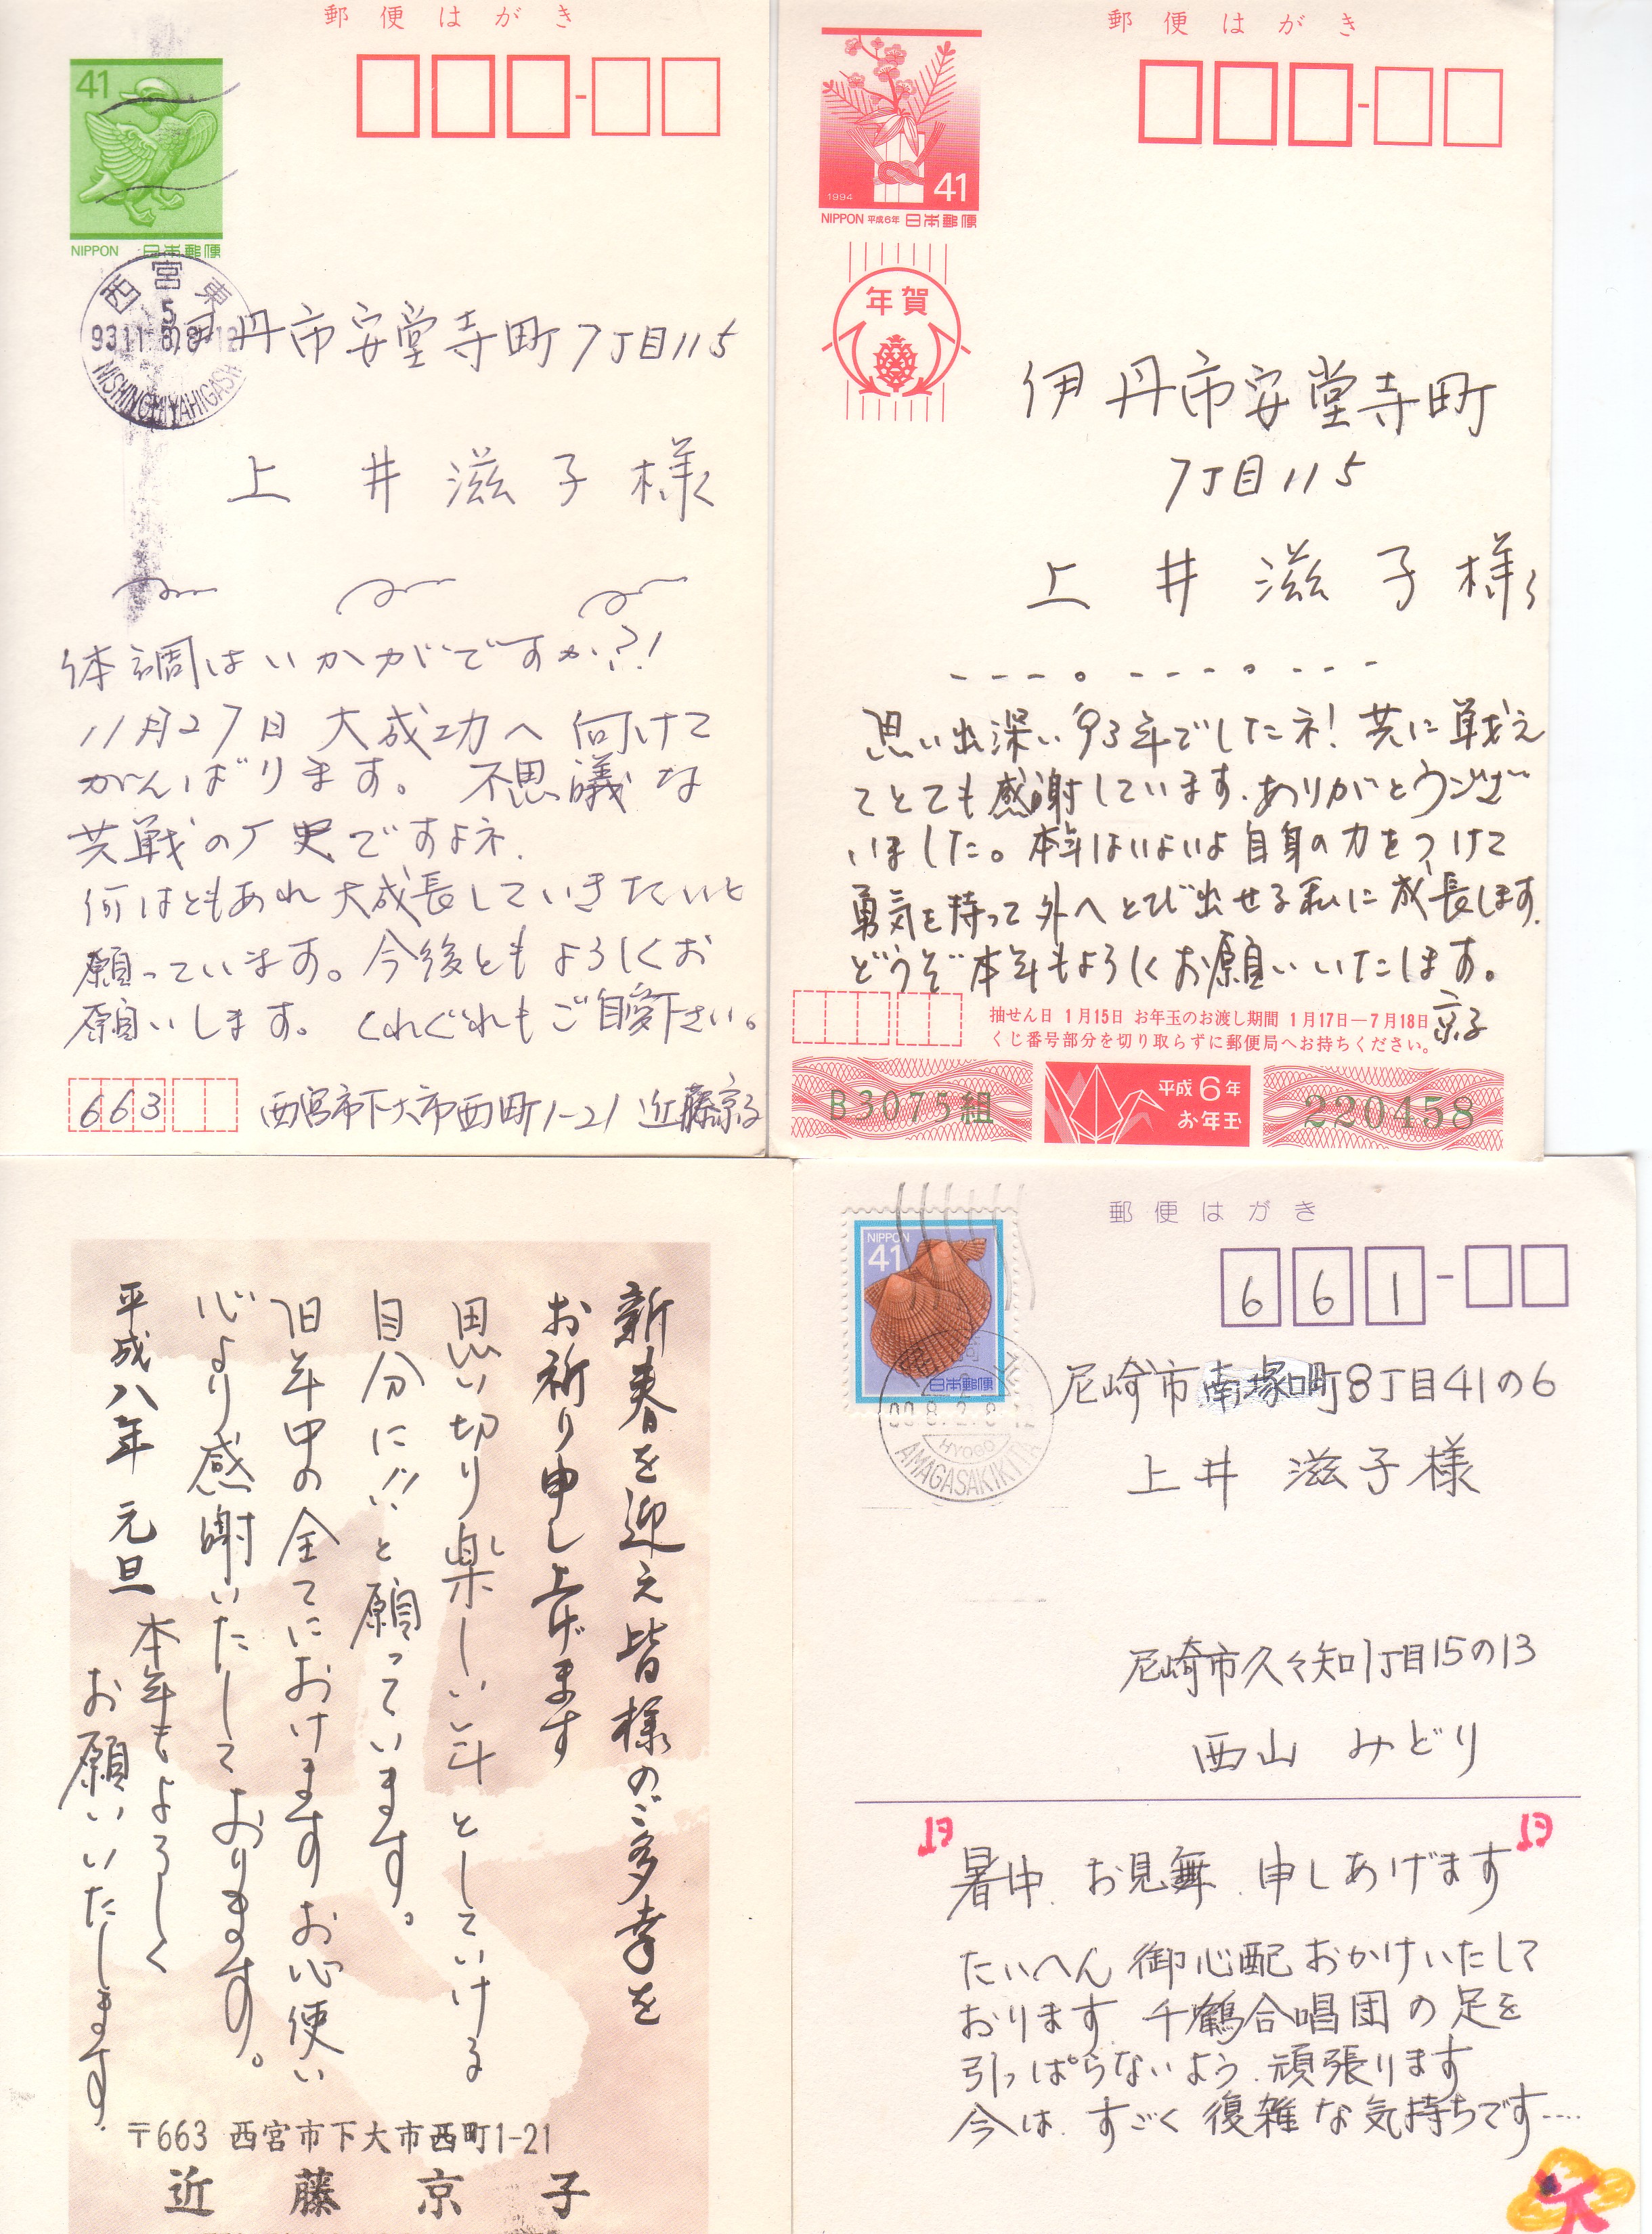 郵便はがき
41
NIPPON 日本郵便
西宮東
93 11
NISHINOMIYAHIGASHI
丹市安堂寺町7丁目115
上井滋子様
体調はいかがですか?!
11月27日大成功へ向けて
がんばります。不思議な
共戦の厂史ですよネ.
何はともあれ大成長していきたいと
願っています。今後ともよろしくお
願いします。くれぐれもご自愛下さい。
663 西宮市下大市西町1-21 近藤京子
郵便はがき
1994 41
NIPPON 平成6年 日本郵便
年賀
伊丹市安堂寺町
7丁目115
上井滋子様
思い出深い'93年でしたネ!共に戦え
てとても感謝しています.ありがとうござ
いました。本年はいよいよ自身の力をつけて
勇気を持って外へとび出せる私に成長します.
どうぞ本年もよろしくお願いいたします。
京子
抽せん日 1月15日 お年玉のお渡し期間 1月17日―7月18日
くじ番号部分を切り取らずに郵便局へお持ちください。
B3075組 平成6年 お年玉 220458
新春を迎え皆様のご多幸を
お祈り申し上げます
思い切り楽しい年としていける
自分に!!と願っています。
旧年中の全てにおけますお心使い
心より感謝いたしております。
平成八年 元旦
本年もよろしく
お願いいたします.
〒663 西宮市下大市西町1-21
近藤京子
郵便はがき
NIPPON
41
日本郵便
HYOGO
AMAGASAKIKITA
661
尼崎市南塚口町8丁目41の6
上井 滋子様
尼崎市久々知1丁目15の13
西山 みどり
暑中.お見舞.申しあげます
たいへん御心配おかけいたして
おります.千鶴合唱団の足を
引っぱらないよう.頑張ります
今は.すごく復雑な気持ちです....